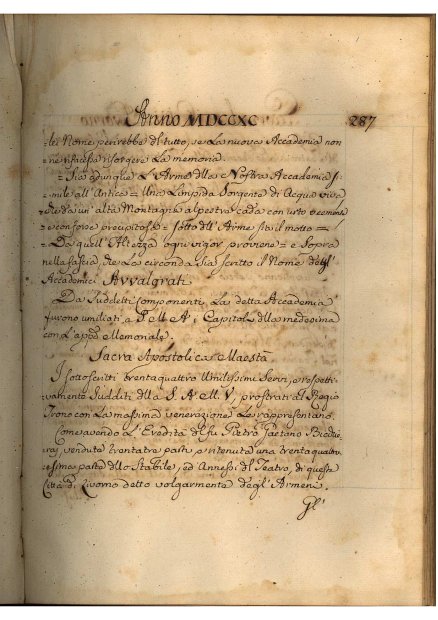 Anno MDCCXC 287
=lei Nome perirebbe del tutto, se La nuova Accademia non
ne facesse risorgere La memoria.
= Sia adunque L'Arme della Nostra Accademia si=
=mile all'Antica = Una Limpida Sorgente di Acqua viva
che da un'alta Montagna alpestra cada con urto
e con precipitoso = sotto all'Arme sia il motto =
= Da quell'Altezza ogni vigor proviene = e Sopra
nella fascia, che La circonda Sia Scritto il Nome degl'
Accademici Avvalorati.
Da Suddetti Componenti La detta Accademia
furono umiliati a S. M. A. i Capitoli della medesima
con L'appo. Memoriale.
Sacra Apostolica Maestà
I Sottoscritti trentaquattro Umilissimi Servi, e respetti=
vamente Sudditi della S. A. M. V., prostrati al Regio
Trono con La massima venerazione Le rappresentano.
Come avendo L'Eredità del fu Pietro Gaetano
vendute trentatre parti, e ritenuta una trentaquattr=
esima parte dello Stabile, ed Annessi del Teatro, di questa
Città di Livorno detto volgarmente degl'Armeni.
Gl'